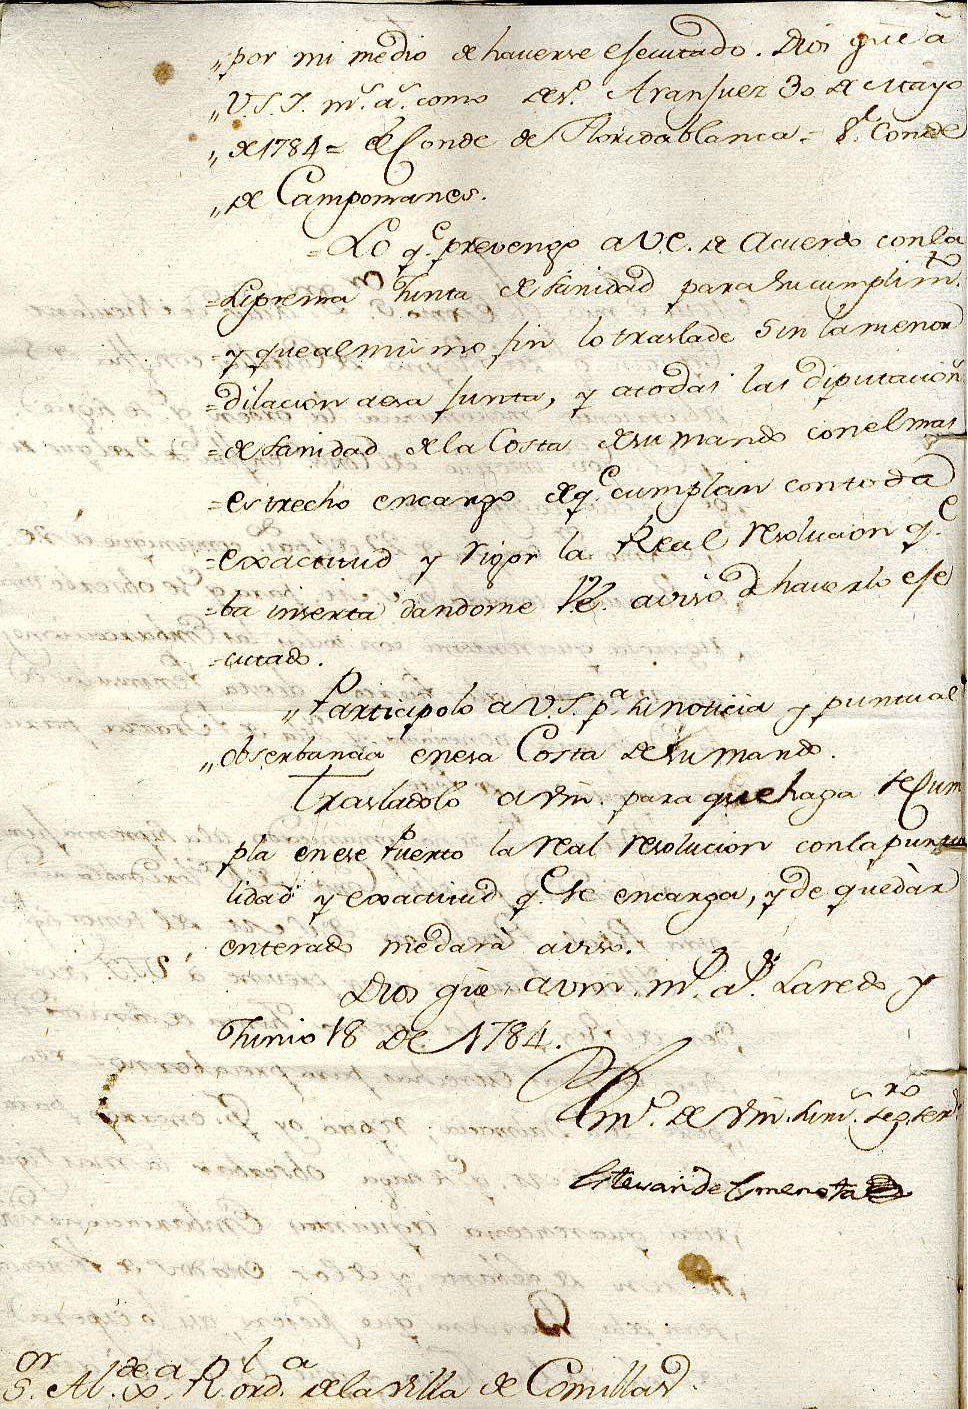 „por mi medio de haverse esecutado. Dios gue à
„V.S.I. ms. as. como des.o Aranjuez 30 de Mayo
„de 1784 = el Conde de Floridablanca = Sr. Conde
„de Campomanes.
=Lo qe. prevengo a VE. de Acuerdo con la
=Suprema Junta de Sanidad para su cumplimto.
=y que al mismo fin lo traslade sin la menor
=dilacion aesa Junta, y atodas las diputacion.s
=de Sanidad de la Costa desu mando con el mas
=estrecho encargo de qe. cumplan con toda
=exactitud y rigor la Real resolucion qe.
=ba inserta dandome VE. aviso de haverlo ese
=cutado.
„Participolo a V.S. pa. su noticia y puntual
„obserbancia enesa Costa desu mando.
Trasladolo a Vm. para que haga se Cum
pla enese Puerto la real resolucion con la puntua
lidad y exactitud qe. se encarga, y de quedàr
enterado me darà aviso.
Dios gue a Vm. ms. as. Laredo y
Junio 18 de 1784.
de Vm. su ms. segro. ser.r
Estevan de
Sor. Alde. de la Villa de Comillas.